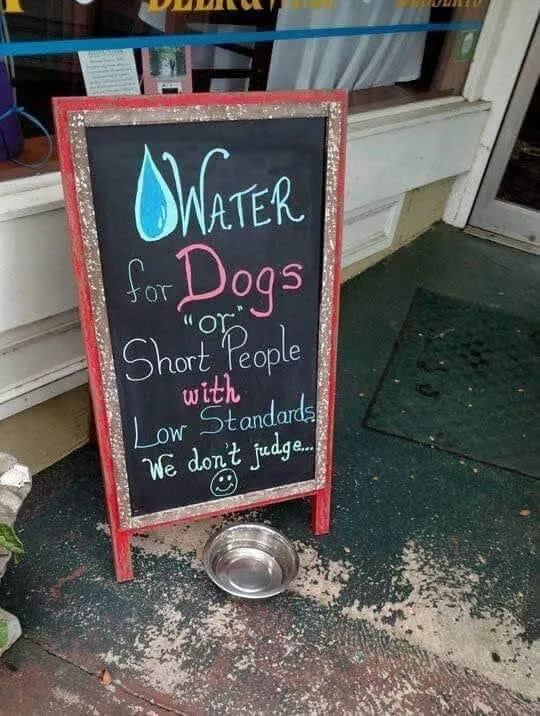 BEER & WINE DESSERTS
WATER
for Dogs
"or"
Short People
with
Low Standards
We don't judge...